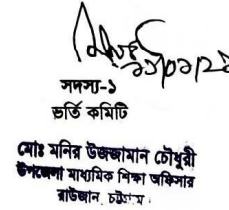 সদস্য-১
ভর্তি কমিটি
মোঃ মনির উজ্জামান চৌধুরী
উপজেলা মাধ্যমিক শিক্ষা অফিসার
রাউজান, চট্টগ্রাম।